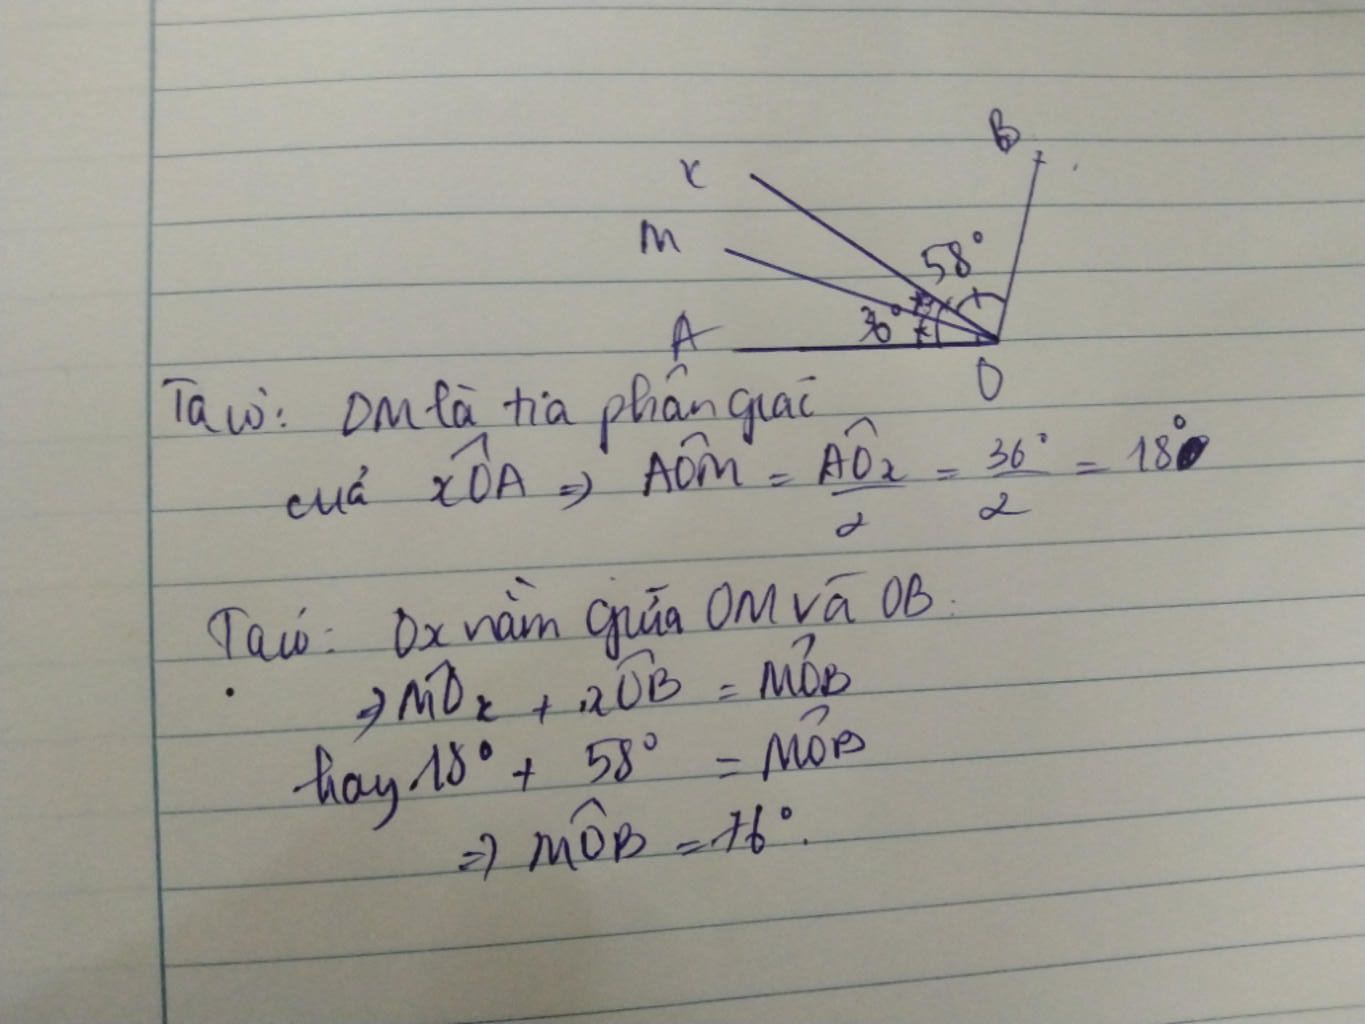 B
x
M
58°
36°
A
O
Ta có: OM là tia phân giác
của xÔA => AÔM = AÔx/2 = 36°/2 = 18°
Ta có: Ox nằm giữa OM và OB.
=> MÔx + xÔB = MÔB
hay 18° + 58° = MÔB
=> MÔB = 76°.